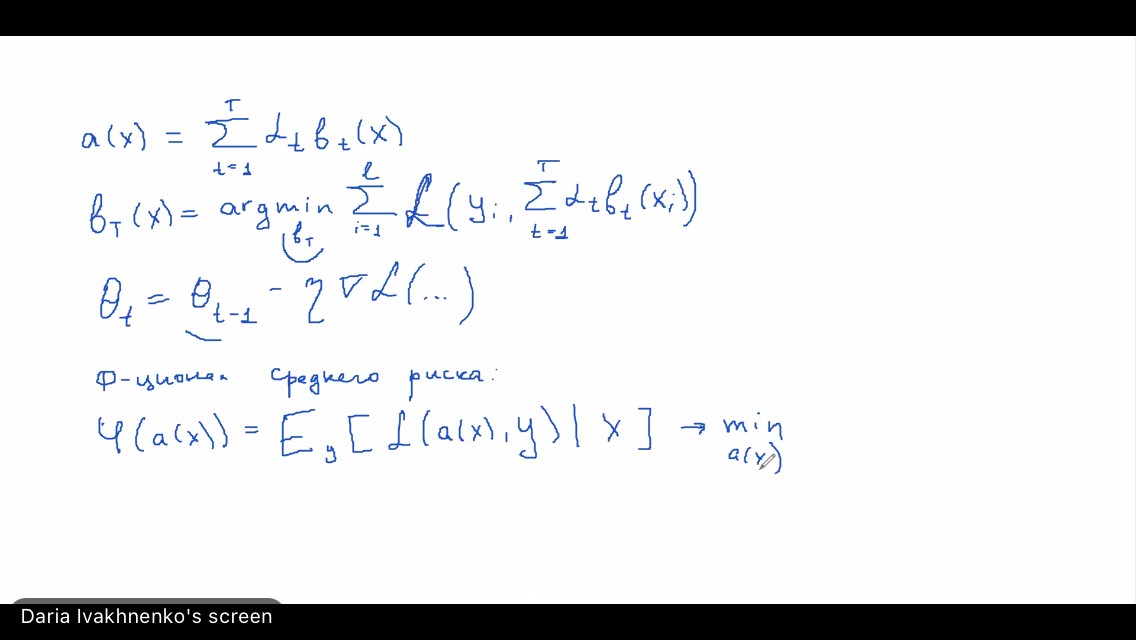 a(x) = ∑_{t=1}^{T} α_t b_t(x)
b_T(x) = argmin_{b_T} ∑_{i=1}^{ℓ} ℒ(y_i, ∑_{t=1}^{T} α_t b_t(x_i))
θ_t = θ_{t-1} - η ∇ ℒ(...)
Ф-ционал среднего риска:
φ(a(x)) = E_y [ℒ(a(x), y) | x] → min_{a(x)}
Daria Ivakhnenko's screen